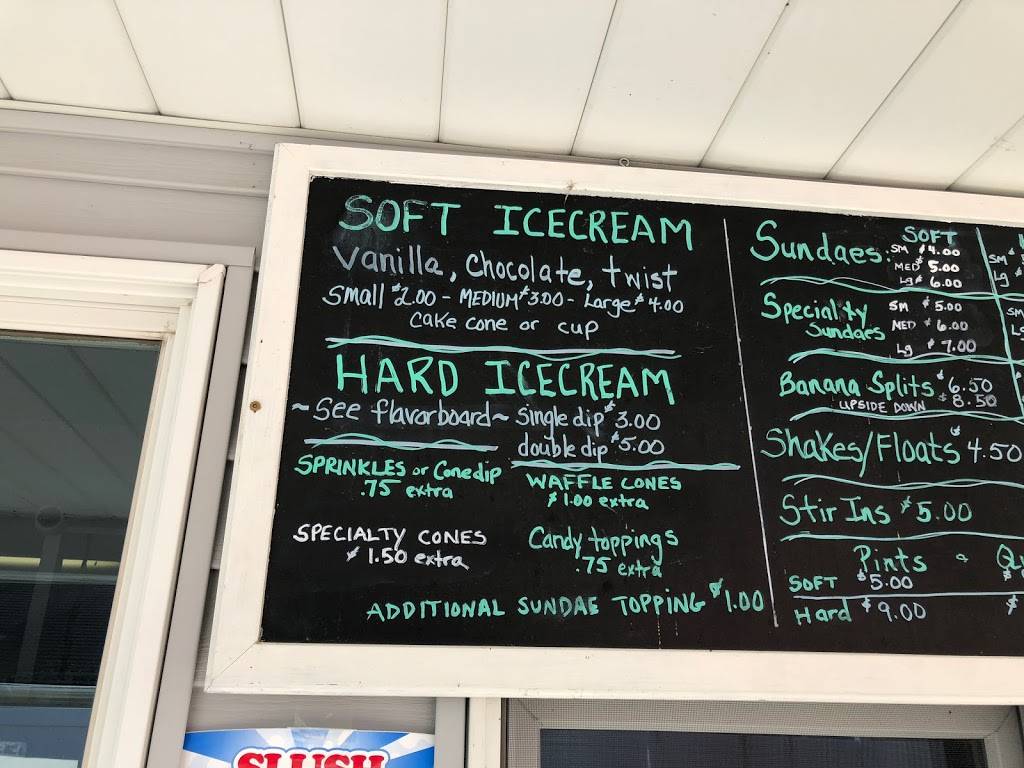 SOFT ICECREAM
Vanilla, Chocolate, twist
Small $2.00 - MEDIUM $3.00 - Large $4.00
Cake cone or cup
HARD ICECREAM
~See flavorboard~ Single dip $3.00
double dip $5.00
SPRINKLES or Conedip
.75 extra
WAFFLE CONES
$1.00 extra
SPECIALTY CONES
$1.50 extra
Candy toppings
.75 extra
ADDITIONAL SUNDAE TOPPING $1.00
SOFT
Sundaes: SM $4.00
MED $5.00
Lg $6.00
SM $
Lg $
Specialty Sundaes
SM $5.00
MED $6.00
Lg $7.00
SM
Banana Splits $6.50
UPSIDE DOWN $8.50
Shakes/Floats $4.50
Stir Ins $5.00
Pints
SOFT $5.00
Hard $9.00 $
SLUSH